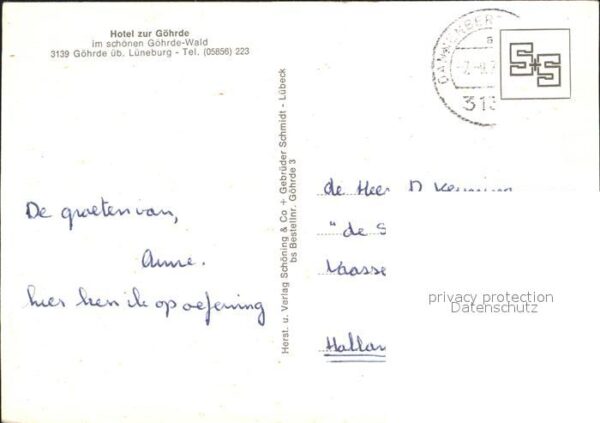 Hotel zur Göhrde
im schönen Göhrde-Wald
3139 Göhrde üb. Lüneburg - Tel. (05856) 223
DANNENBER
a
313
S+S
De groeten van,
Anne.
hier ben ik op oefening
Herst. u. Verlag Schöning & Co + Gebrüder Schmidt - Lübeck
bs Bestellnr. Göhrde 3
de Heer D
"de S
Vaasse
Hollan
privacy protection
Datenschutz